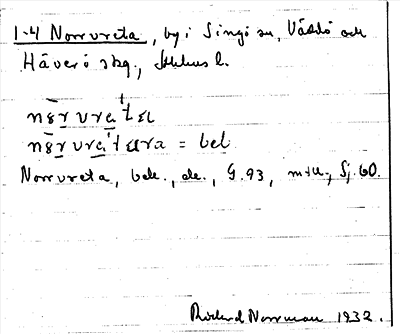 1-4 Norrvreta, by i Singö sn, Väddö och
Häverö skg., Sthlms l.
nørvreta
nørvretara = bel.
Norrvreta, bel., G.93, Sj.60.
Rickard Norrman 1932.